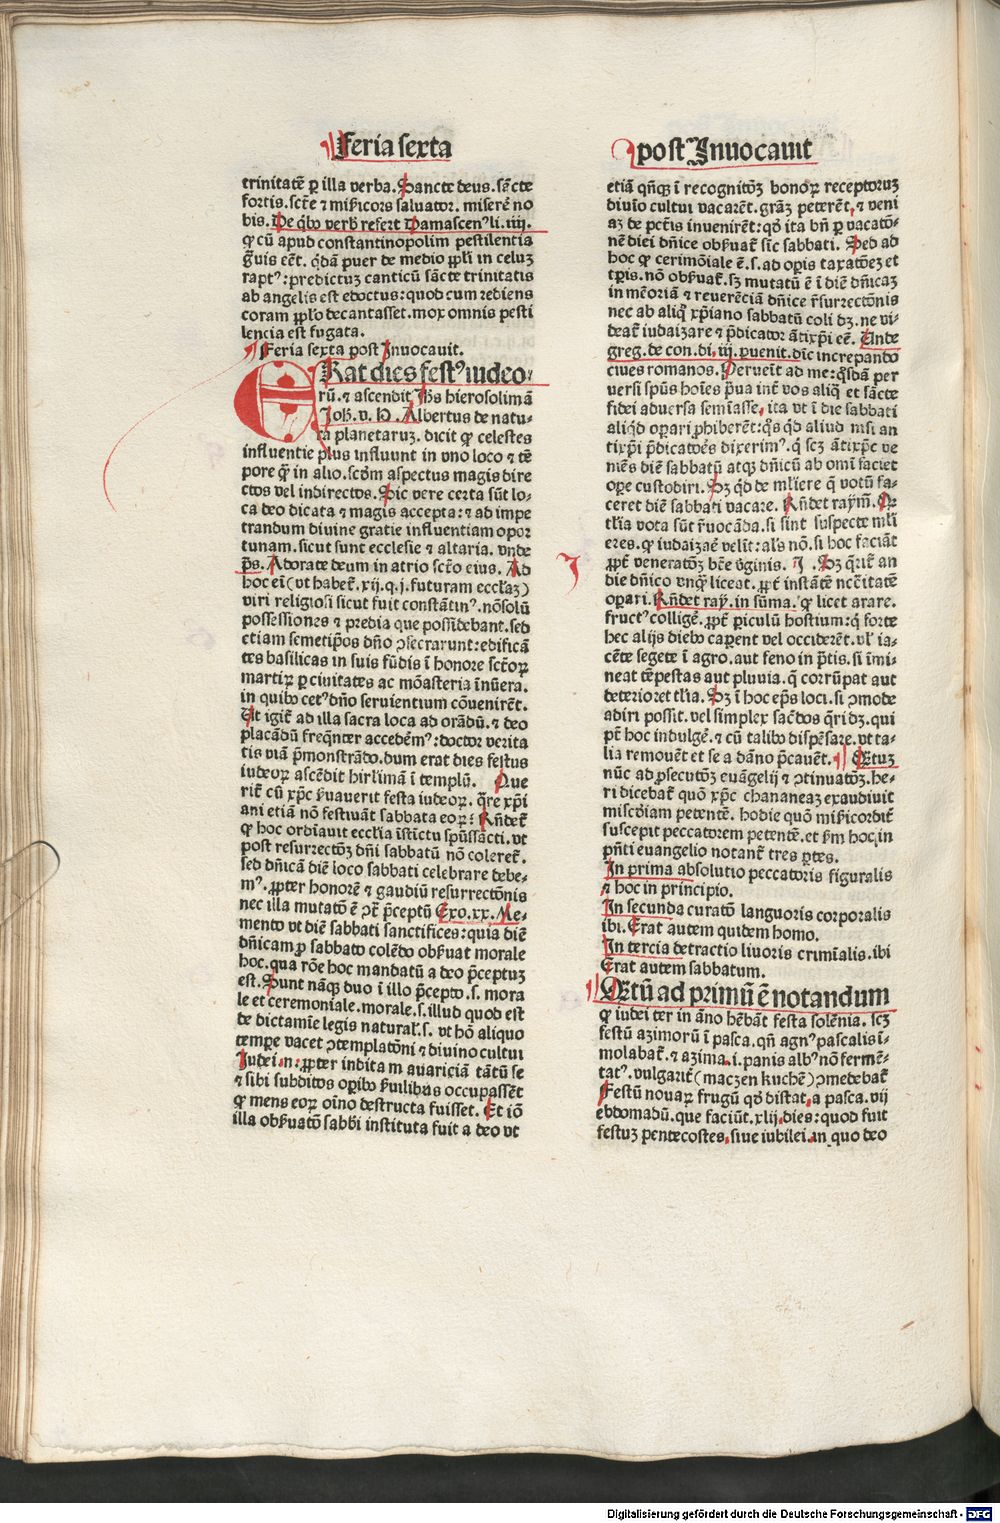 Feria sexta
trinitatē ꝑ illa verba. Sancte deus. sācte
fortis. sctē ⁊ miẜicors saluator. miserē no
bis. De q̈bꝰ verbꝭ refert Damascenꝰ li. iiij.
ꝙ cū apud constantinopolim pestilentia
gͣuis eēt. qͥdā puer de medio ppl̄i in celuꝫ
raptꝰ: predictuꝫ canticū sācte trinitatis
ab angelis est edoctus: quod cum rediens
coram ppl̓o decantasset. mox omnis pesti
lencia est fugata.
Feria sexta post Inuocauit.
ERat dies festꝰ iudeo⸗
rū. ⁊ ascendit Jh̄s hierosolimā
Joh̄. v. H. Albertus de natu⸗
ra planetaruꝫ. dicit ꝙ celestes
influentie plus influunt in vno loco ⁊ tē
pore ꝙ̄ in alio. scd̄m aspectus magis dire
ctos vel indirectos. Sic vere certa sūt lo⸗
ca deo dicata ⁊ magis accepta: ⁊ ad impe
trandum diuine gratie influentiam opor
tunam. sicut sunt ecclesie ⁊ altaria. vnde
pͣs. Adorate deum in atrio sctō eius. Ad
hoc eī (vt habet̄. xij. q. j. futuram eccl̓aꝫ)
viri religiosi sicut fuit constātinꝰ. nōsolū
possessiones ⁊ predia que possidebant. sed
etiam semetip̄os dn̄o ꝯsecrarunt: edificā
tes basilicas in suis fūdis ī honore sctōꝝ
martiꝝ ꝑ ciuitates ac mōasteria īnūera.
in quibꝰ cetꝰ dn̄o seruientium cōuenirēt.
Sit igit̄ ad illa sacra loca ad orādū. ⁊ deo
placādū freq̄nter accedēmꝰ: doctor verita
tis viā p̄monstrādo. dum erat dies festus
iudeoꝝ ascēdit hirl̓imā ī templū. Que
rit̄ cū xp̄c ẜuauerit festa iudeoꝝ. q̄re xp̄i
ani etiā nō festiuāt sabbata eoꝝ: Rn̄det̄
ꝙ hoc ordīauit eccl̓ia īstīctu spūssācti. vt
post resurrectōꝫ dn̄i sabbatū nō coleret̄.
sed dn̄icā diē loco sabbati celebrare debe⸗
mꝰ. ꝓpter honorē ⁊ gaudiū resurrectōnis
nec illa mutatō ē ꝯͣ p̄ceptū Exo. xx. Me⸗
mento vt diē sabbati sanctifices: quia diē
dn̄icam ꝓ sabbato colēdo obẜuat morale
hoc. qua rōe hoc mandatū a deo p̄ceptuꝫ
est. Sunt nāqꝫ duo ī illo p̄cepto. s. mora
le et ceremoniale. morale. s. illud quod est
de dictamīe legis natural̓. s. vt hō aliquo
tempe vacet ꝯtemplatōni ⁊ diuino cultui
Judei. n. ꝓpter inditam auariciā tātū se
⁊ sibi subditos opibꝰ ẜuilibus occupassēt
ꝙ mens eoꝝ oīno destructa fuisset. Et iō
illa obẜuatō sabbī instituta fuit a deo vt
post Inuocauit
etiā qn̄qꝫ ī recognitōꝫ bonoꝝ receptoruꝫ
diuīo cultui vacarēt. grāꝫ peterēt, ⁊ veni
aꝫ de pctīs inuenirēt: qd̓ ita bn̄ ꝑ vacatō⸗
nē diei dn̄ice obẜuat̄ sīc sabbati. Sed ad
hoc ꝙ cerimōiale ē. s. ad opis taxatōeꝫ et
tpis. nō obẜuat̄. sꝫ mutatū ē ī diē dn̄icaꝫ
in mēoriā ⁊ reuerēciā dn̄ice r̄surrectōnis
nec ab aliqͦ xp̄iano sabbatū coli dꝫ. ne vi⸗
deat̄ iudaizare ⁊ p̄dicator ātixp̄i eē. Unde
greg. de con. di. iij. ꝑuenit. dīc increpando
ciues romanos. Peruēit ad me: qͦsdā per
uersi spūs hoīes p̄ua int̄ vos aliqͣ et sācte
fidei aduersa semīasse, ita vt ī die sabbati
aliqͥd opari ꝓhiberēt: qͦs qͥd aliud nisi an
tixp̄i p̄dicatoēs dixerimꝰ. q̄ scꝫ ātixp̄c ve
niēs diē sabbatū atqꝫ dn̄icū ab omī faciet
ope custodiri. Sꝫ qͥd de ml̓iere q̄ votū fa⸗
ceret diē sabbati vacare. Rn̄det raym̄. Qꝝ
tl̓ia vota sūt r̄uocāda. si sint suspecte ml̓i
eres. ꝙ iudaizaē velīt: al̓s nō. si hoc faciāt
ꝓpt̄ veneratōꝫ btē v̓ginis. J. Sꝫ q̄rit̄ an
die dn̄ico vnqͣꝫ liceat. ꝓpt̄ instātē ncc̄itatē
opari. Rn̄det ray. in sūma. ꝙ licet arare.
fructꝰ colligē. ꝓpt̄ piculū hostium: q̄ forte
hec alijs diebꝰ capent vel occiderēt. vl̓ ia⸗
cēte segete ī agro. aut feno in p̄tis. si īmi⸗
neat tēpestas aut pluuia. q̄ corrūpat aut
deterioret tl̓ia. Sꝫ ī hoc ep̄s loci. si ꝯmode
adiri possit. vel simplex sac̓dos q̄ri dꝫ. qui
pt̄ hoc indulgē. ⁊ cū talibꝰ dispēsare. vt ta⸗
lia remouēt et se a dāno p̄cauēt. Metuꝫ
nūc ad ꝓsecutōꝫ euāgelij ⁊ ꝯtinuatōꝫ. he⸗
ri dicebat̄ quō xp̄c chananeaꝫ exaudiuit
misc̓diam petentē. hodie quō miẜicordit̄
suscepit peccatorem petentē. et ẜm hoc, in
pn̄ti euangelio notant̄ tres ꝑtes.
In prima absolutio peccatoris figuralis
⁊ hoc in principio.
In secunda curatō languoris corporalis
ibi. Erat autem quidem homo.
In tercia detractio liuoris crimīalis. ibi
Erat autem sabbatum.
Qētū ad primū ē notandum
ꝙ iudei ter in āno hēbāt festa solēnia. scꝫ
festū azimorū ī pasca. qn̄ agnꝰ pascalis ī⸗
molabat̄. ⁊ azima. i. panis albꝰ nō fermē⸗
tatꝰ. vulgarit̄ (maczen kuchē) ꝯmedebat̄
Festū nouaꝝ frugū qd̓ distat, a pasca. vij
ebdomadū. que faciūt. xlij. dies: quod fuit
festuꝫ pentecostes, siue iubilei. in quo deo
J
Digitalisierung gefördert durch die Deutsche Forschungsgemeinschaft - DFG